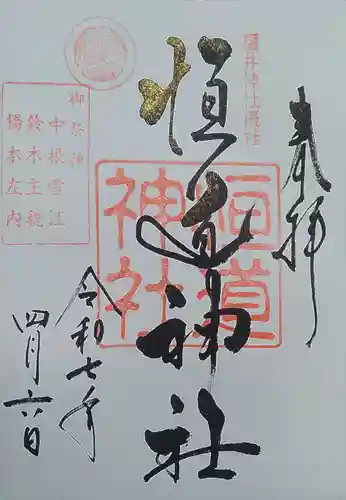 奉拝
福井神社摂社
恒道神社
恒道神社
御祭神
中根雪江
鈴木主税
橋本左内
令和七年
四月六日